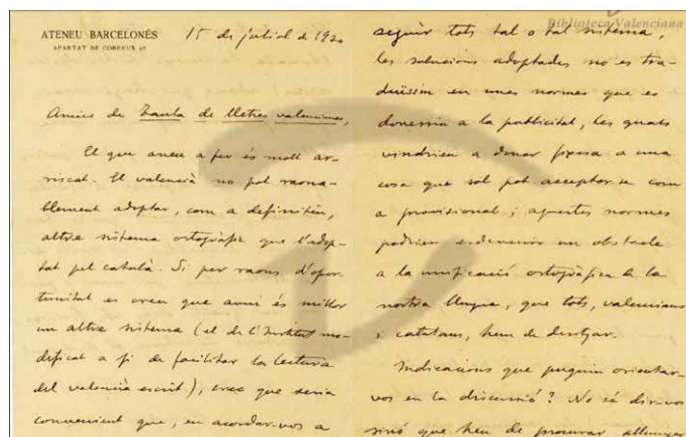 ATENEU BARCELONÉS
APARTAT DE CORREUS
15 de juliol de 1930
Amics de Taula de lletres valencianes,
El que aneu a fer és molt ar-
riscat. El valencià no pot raona-
blement adoptar, com a definitiu,
altre sistema ortogràfic que l'adop-
tat pel català. Si per raons d'opor-
tunitat es creu que avui és millor
un altre sistema (el de l'Institut mo-
dificat a fi de facilitar la lectura
del valencià escrit), crec que seria
convenient que, en acordar-vos a
Biblioteca Valenciana
seguir tots tal o tal sistema,
les solucions adoptades no es tra-
duïssin en unes normes que es
donessin a la publicitat, les quals
vindrien a donar fixesa a una
cosa que sol pot acceptar-se com
a provisional; aquestes normes
podrien esdevenir un obstacle
a la unificació ortogràfica de la
nostra llengua, que tots, valencians
i catalans, hem de desitjar.
Indicacions que puguin orientar-
vos en la discussió? No sé dir-vos
sinó que heu de procurar allunyar